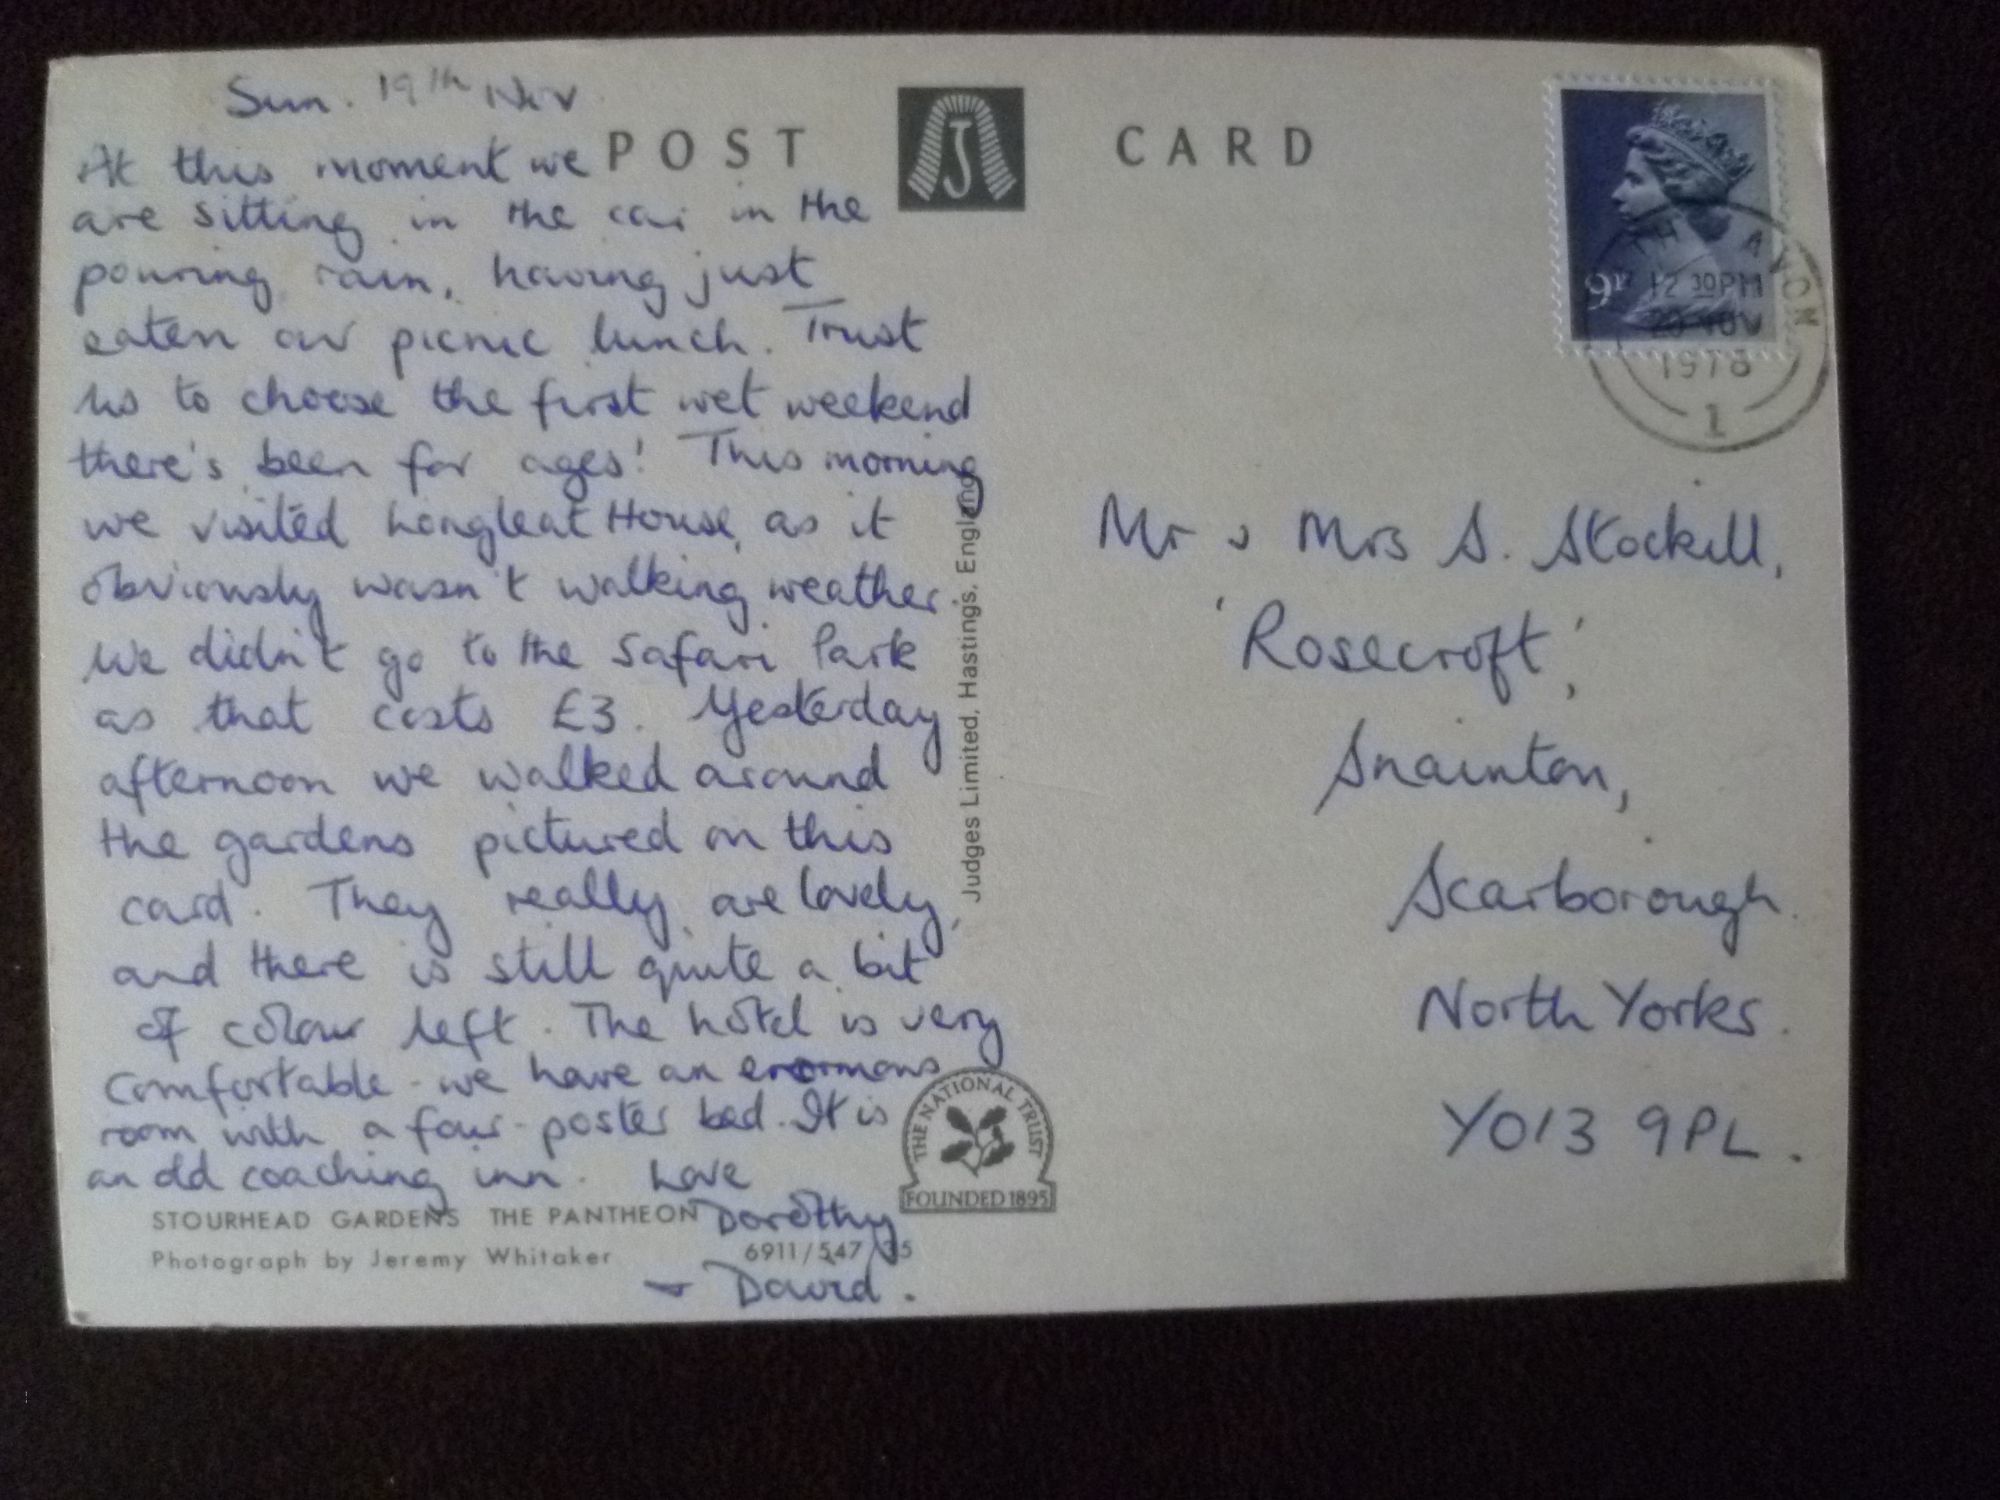 Sun. 19th Nov
At this moment we
are sitting in the car in the
pouring rain, having just
eaten our picnic lunch. Trust
us to choose the first wet weekend
there's been for ages! This morning
we visited Longleat House, as it
obviously wasn't walking weather.
We didn't go to the Safari Park
as that costs £3. Yesterday
afternoon we walked around
the gardens pictured on this
card. They really are lovely,
and there is still quite a bit
of colour left. The hotel is very
comfortable - we have an enormous
room with a four-poster bed. It is
an old coaching inn. Love
Dorothy
+ David.
POST CARD
J
Judges Limited, Hastings, England
STOURHEAD GARDENS THE PANTHEON
Photograph by Jeremy Whitaker
6911/547/35
THE NATIONAL TRUST
FOUNDED 1895
9P
12 30PM
20 NOV
1978
1
Mr & Mrs S. Stockill,
'Rosecroft',
Snainton,
Scarborough.
North Yorks.
YO13 9PL.